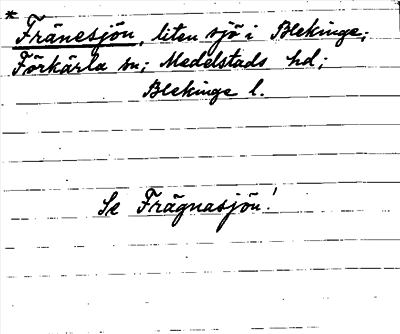 * Fränesjön, liten sjö i Blekinge;
Förkärla sn; Medelstads hd;
Blekinge l.
Se Frägnasjön!